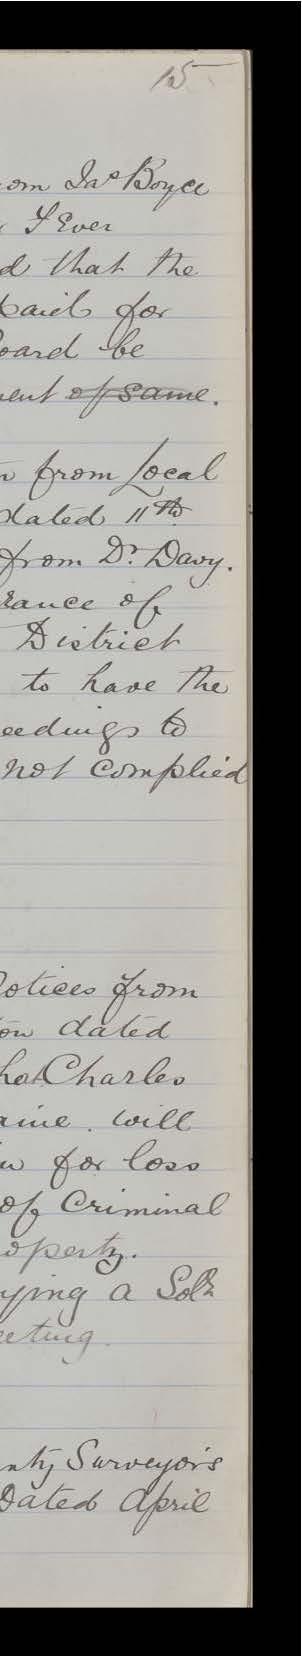 15
om Jas Boyce
Fever
d that the
paid for
oard be
ent of same.
from Local
dated 11th
from Dr. Davy.
rance of
District
to have the
eedings to
not complied
otices from
on dated
Charles
aine. will
for loss
of Criminal
operty.
ying a Solr
eeting.
nty Surveyors
Dated April